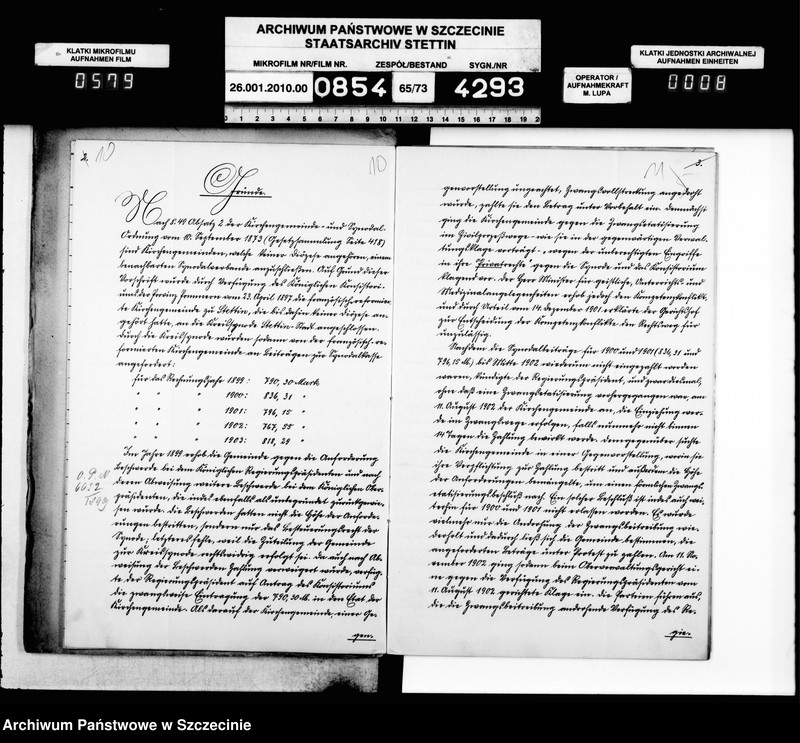 ARCHIWUM PAŃSTWOWE W SZCZECINIE
STAATSARCHIV STETTIN
KLATKI MIKROFILMU
AUFNAHMEN FILM
0579
MIKROFILM NR/FILM NR.
ZESPÓŁ/BESTAND
SYGN./NR
26.001.2010.00
0854
65/73
4293
OPERATOR /
AUFNAHMEKRAFT
M. LUPA
KLATKI JEDNOSTKI ARCHIWALNEJ
AUFNAHMEN EINHEITEN
0008
0 1 2 3 4 5 6 7 8 9 10 11 12 13 14 15 16 17 18 19 20
2.
10
10
Gründe.
Nach § 49 Absatz 2 der Kirchengemeinde- und Synodal-
Ordnung vom 10. September 1873 (Gesetzsammlung Seite 418)
sind Kirchengemeinden, welche keiner Diözese angehören, einem
benachbarten Synodalverbande anzuschließen. Auf Grund dieser
Vorschrift wurde durch Verfügung des Königlichen Konsistori-
ums der Provinz Pommern vom 23. April 1897 die französisch-reformier-
te Kirchengemeinde zu Stettin, die bis dahin keiner Diözese an-
gehört hatte, an die Kreissynode Stettin-Stadt angeschlossen.
Durch die Kreissynode wurden sodann von der französisch-re-
formierten Kirchengemeinde an Beiträgen zur Synodalkasse
angefordert:
für das Rechnungsjahr 1899: 790,30 Mark
" " " 1900: 836,31 "
" " " 1901: 796,15 "
" " " 1902: 767,55 "
" " " 1903: 818,29 "
Im Jahre 1899 erhob die Gemeinde gegen die Anforderung
Beschwerde bei dem Königlichen Regierungspräsidenten und nach
deren Abweisung weitere Beschwerde bei dem Königlichen Ober-
präsidenten, die indes ebenfalls als unbegründet zurückgewie-
sen wurde. Die Beschwerden hatten nicht die Höhe der Anforde-
rungen bestritten, sondern nur das Besteuerungsrecht der
Synode; letzteres fehle, weil die Zuteilung der Gemeinde
zur Kreissynode rechtswidrig erfolgt sei. Da auch nach Ab-
weisung der Beschwerden Zahlung verweigert wurde, verfüg-
te der Regierungspräsident auf Antrag des Konsistoriums
die zwangsweise Eintragung der 790,30 M. in den Etat der
Kirchengemeinde. Als darauf der Kirchengemeinde, einer Ge-
gen-
O. P. N
6652
1899
11
3.
genvorstellung ungeachtet, Zwangsvollstreckung angedroht
wurde, zahlte sie den Betrag unter Vorbehalt ein. Demnächst
ging die Kirchengemeinde gegen die Zwangsetatisierung
im Zivilprozeßwege - wie sie in der gegenwärtigen Verwal-
tungsklage vorträgt - "wegen der unberechtigten Eingriffe
in ihre Privatrechte" gegen die Synode und das Konsistorium
klagend vor. Der Herr Minister für geistliche, Unterrichts- und
Medizinalangelegenheiten erhob jedoch den Kompetenzkonflikt,
und durch Urteil vom 14. Dezember 1901 erklärte der Gerichtshof
zur Entscheidung der Kompetenzkonflikte den Rechtsweg für
unzulässig.
Nachdem die Synodalbeiträge für 1900 und 1901 (836,31 und
796,15 M.) bis Mitte 1902 wiederum nicht eingezahlt worden
waren, kündigte der Regierungspräsident, und zwar diesmal,
ohne daß eine Zwangsetatisierung vorhergegangen war, am
11. August 1902 der Kirchengemeinde an, die Einziehung wer-
de im Zwangswege erfolgen, falls nunmehr nicht binnen
14 Tagen die Zahlung bewirkt werde. Demgegenüber suchte
die Kirchengemeinde in einer Gegenvorstellung, worin sie
ihre Verpflichtung zur Zahlung bestritt und außerdem die Höhe
der Anforderungen bemängelte, um einen förmlichen Zwangs-
etatisierungsbeschluß nach. Ein solcher Beschluß ist indes auch wei-
terhin für 1900 und 1901 nicht erlassen worden. Es wurde
vielmehr nur die Androhung der Zwangsbeitreibung wie-
derholt und dadurch ließ sich die Gemeinde bestimmen, die
angeforderten Beträge unter Protest zu zahlen. Am 11. No-
vember 1902 ging sodann beim Oberverwaltungsgericht ei-
ne gegen die Verfügung des Regierungspräsidenten vom
11. August 1902 gerichtete Klage ein. Die Parteien führen aus,
die die Zwangsbeitreibung androhende Verfügung des Re-
gie-
Archiwum Państwowe w Szczecinie
Archiwum Państwowe w Szczecinie